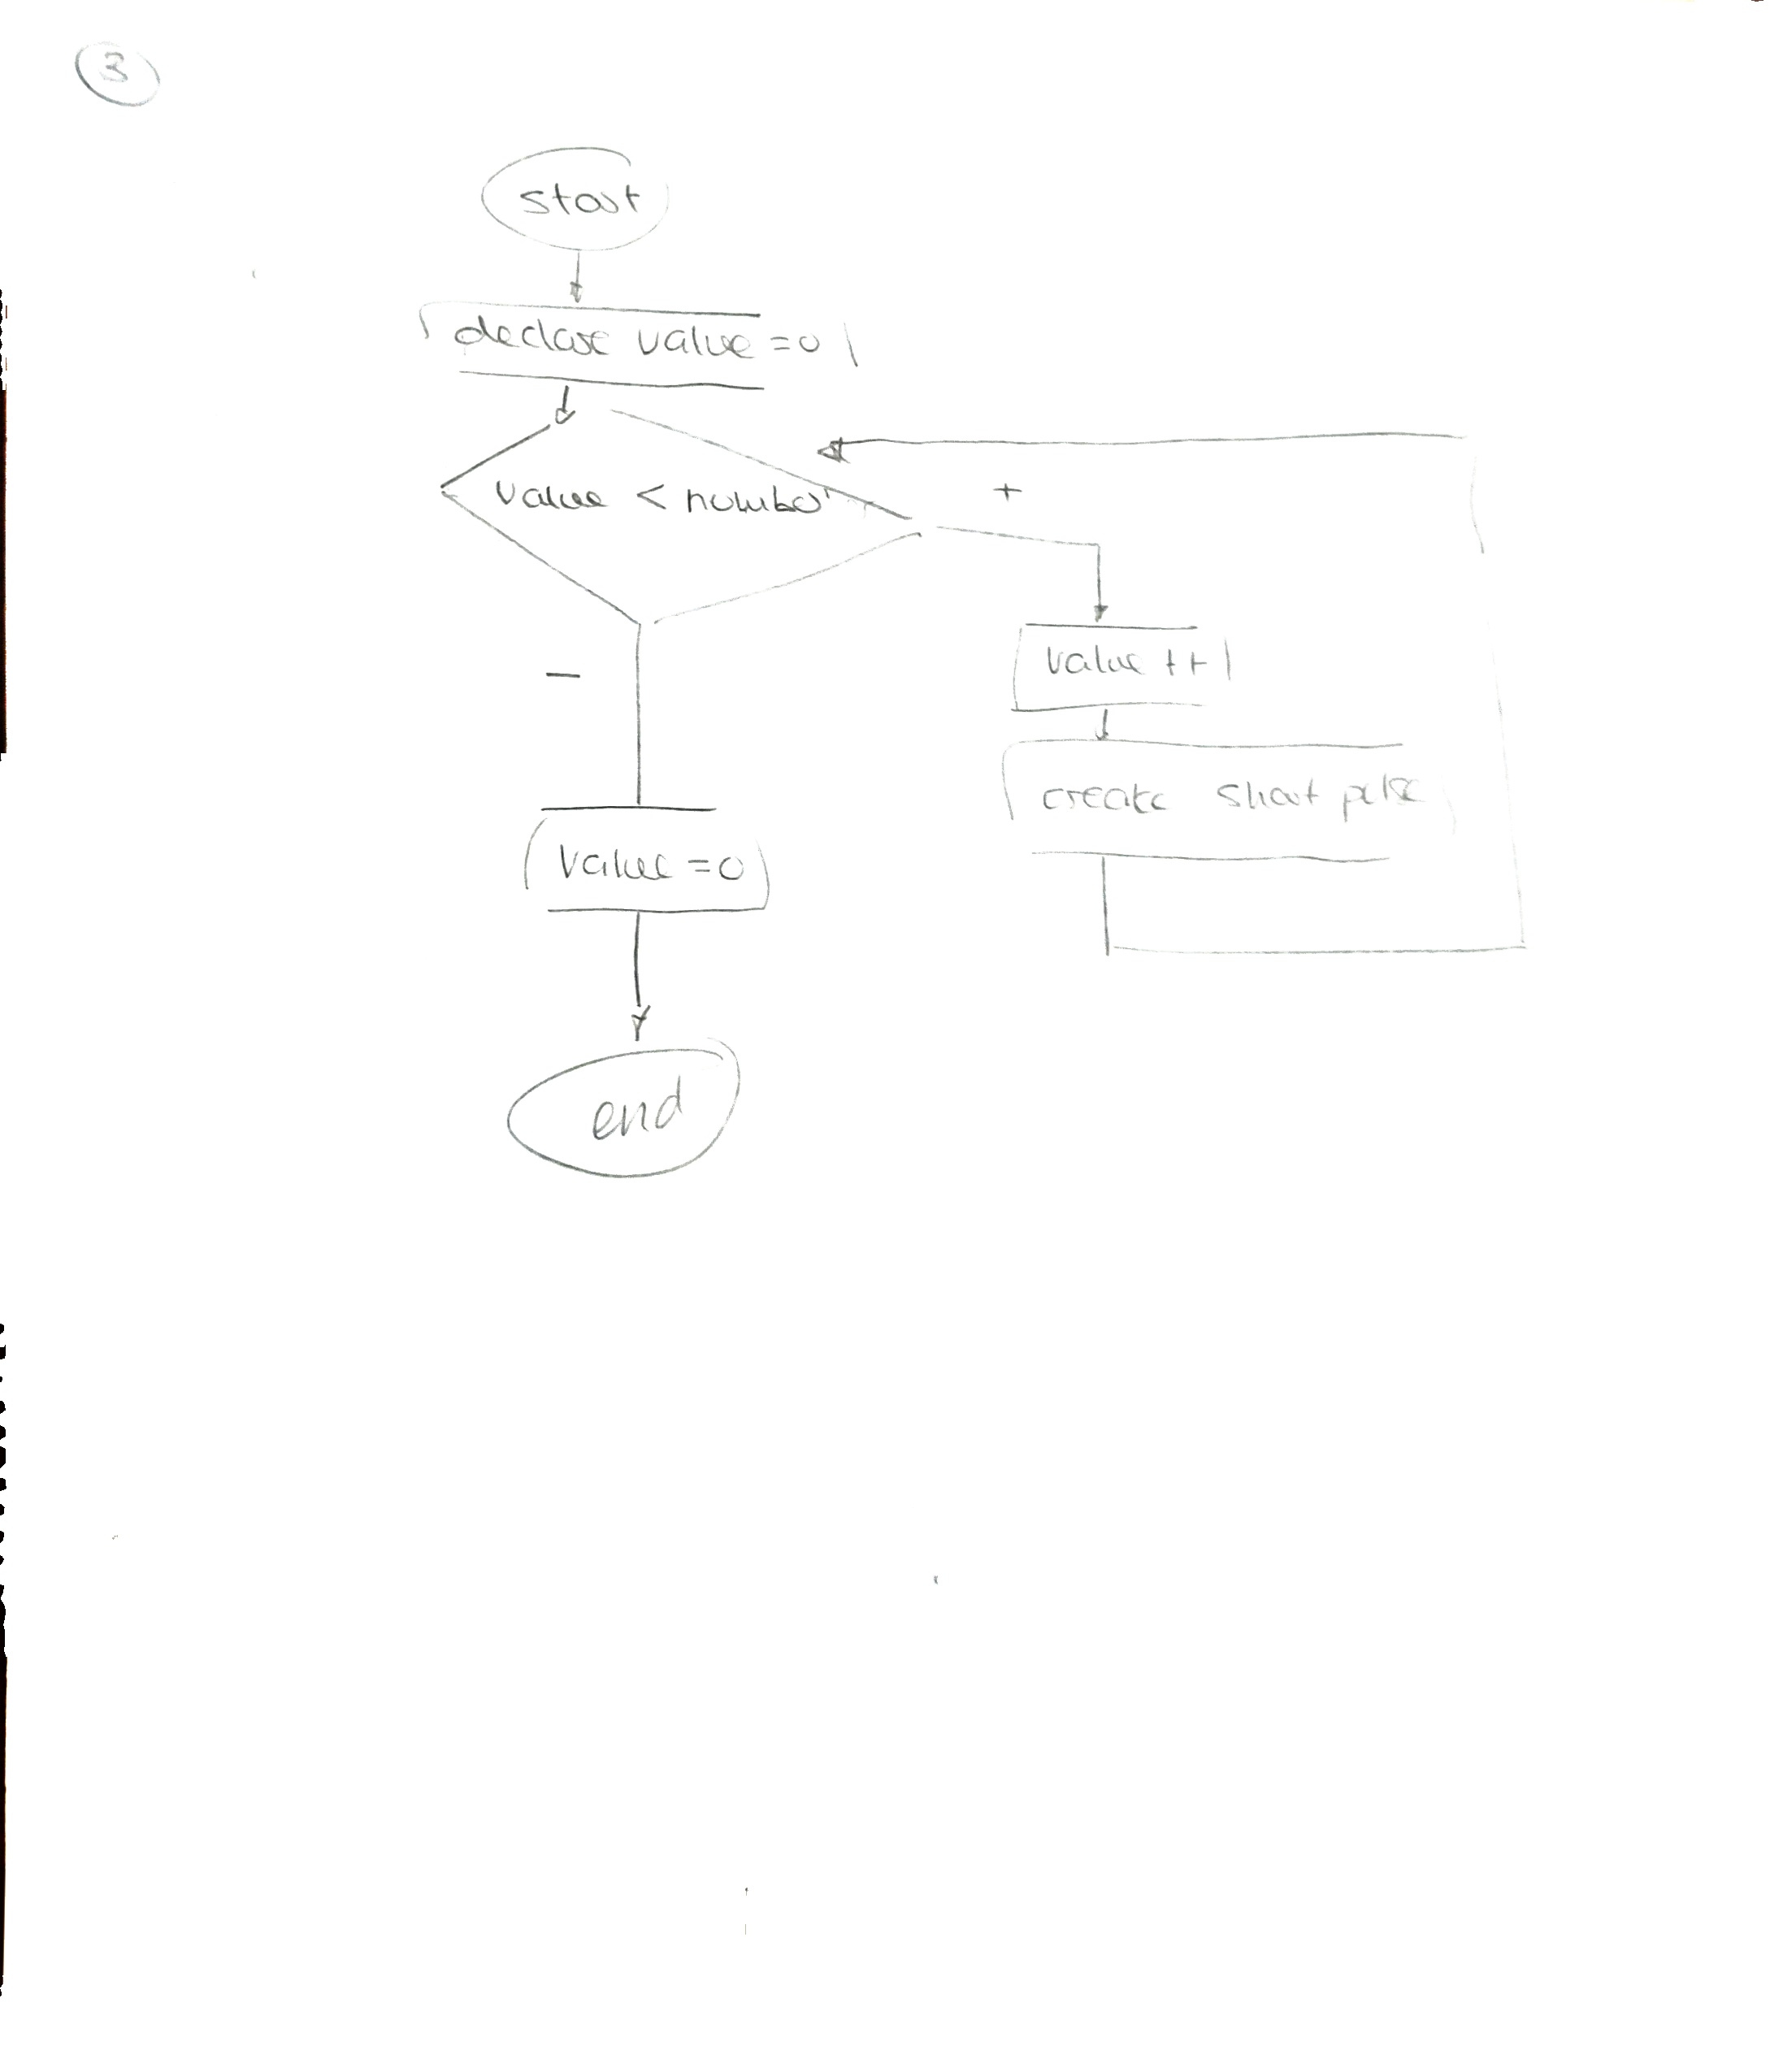 3
start
declare value =0
value < number
+
value ++
-
create short pulse
value =0
end